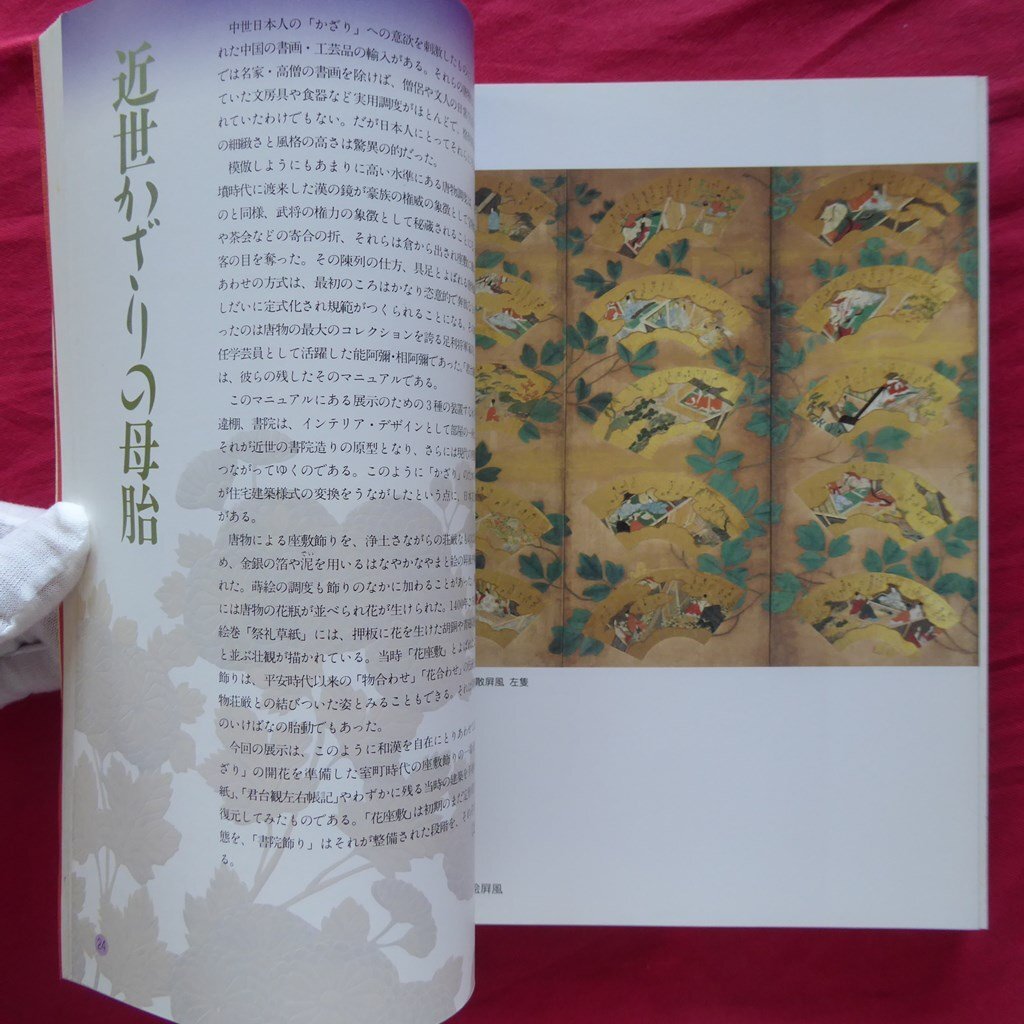 近世かざりの母胎
中世日本人の「かざり」への意欲を刺激したもの
れた中国の書画・工芸品の輸入がある。それらの
では名家・高僧の書画を除けば、僧侶や文人の日常
ていた文房具や食器など実用調度がほとんどで、
れていたわけでもない。だが日本人にとってそれら
の細緻さと風格の高さは驚異の的だった。
模倣しようにもあまりに高い水準にある唐物
墳時代に渡来した漢の鏡が豪族の権威の象徴として
のと同様、武将の権力の象徴として秘蔵されること
や茶会などの寄合の折、それらは倉から出され座敷
客の目を奪った。その陳列の仕方、具足とよばれる
あわせの方式は、最初のころはかなり恣意的で
しだいに定式化され規範がつくられることになる。
ったのは唐物の最大のコレクションを誇る足利将軍
任学芸員として活躍した能阿彌・相阿彌であった。
は、彼らの残したそのマニュアルである。
このマニュアルにある展示のための3種の装置
違棚、書院は、インテリア・デザインとして部屋の一
それが近世の書院造りの原型となり、さらには現代
つながってゆくのである。このように「かざり」の
が住宅建築様式の変換をうながしたという点に、日本
がある。
唐物による座敷飾りを、浄土さながらの荘厳なもの
め、金銀の箔や泥を用いるはなやかなやまと絵の屏風
てい
れた。蒔絵の調度も飾りのなかに加わることがあった
には唐物の花瓶が並べられ花が生けられた。1400年
絵巻「祭礼草紙」には、押板に花を生けた胡銅や
と並ぶ壮観が描かれている。当時「花座敷」とよば
飾りは、平安時代以来の「物合わせ」「花合わせ」の
物荘厳との結びついた姿とみることもできる。それ
のいけばなの胎動でもあった。
今回の展示は、このように和漢を自在にとりあわせ
ざり」の開花を準備した室町時代の座敷飾りの一
紙」、「君台観左右帳記」やわずかに残る当時の建築
復元してみたものである。「花座敷」は初期のまだ
態を、「書院飾り」はそれが整備された段階を、
る。
24
散屏風 左隻
絵屏風